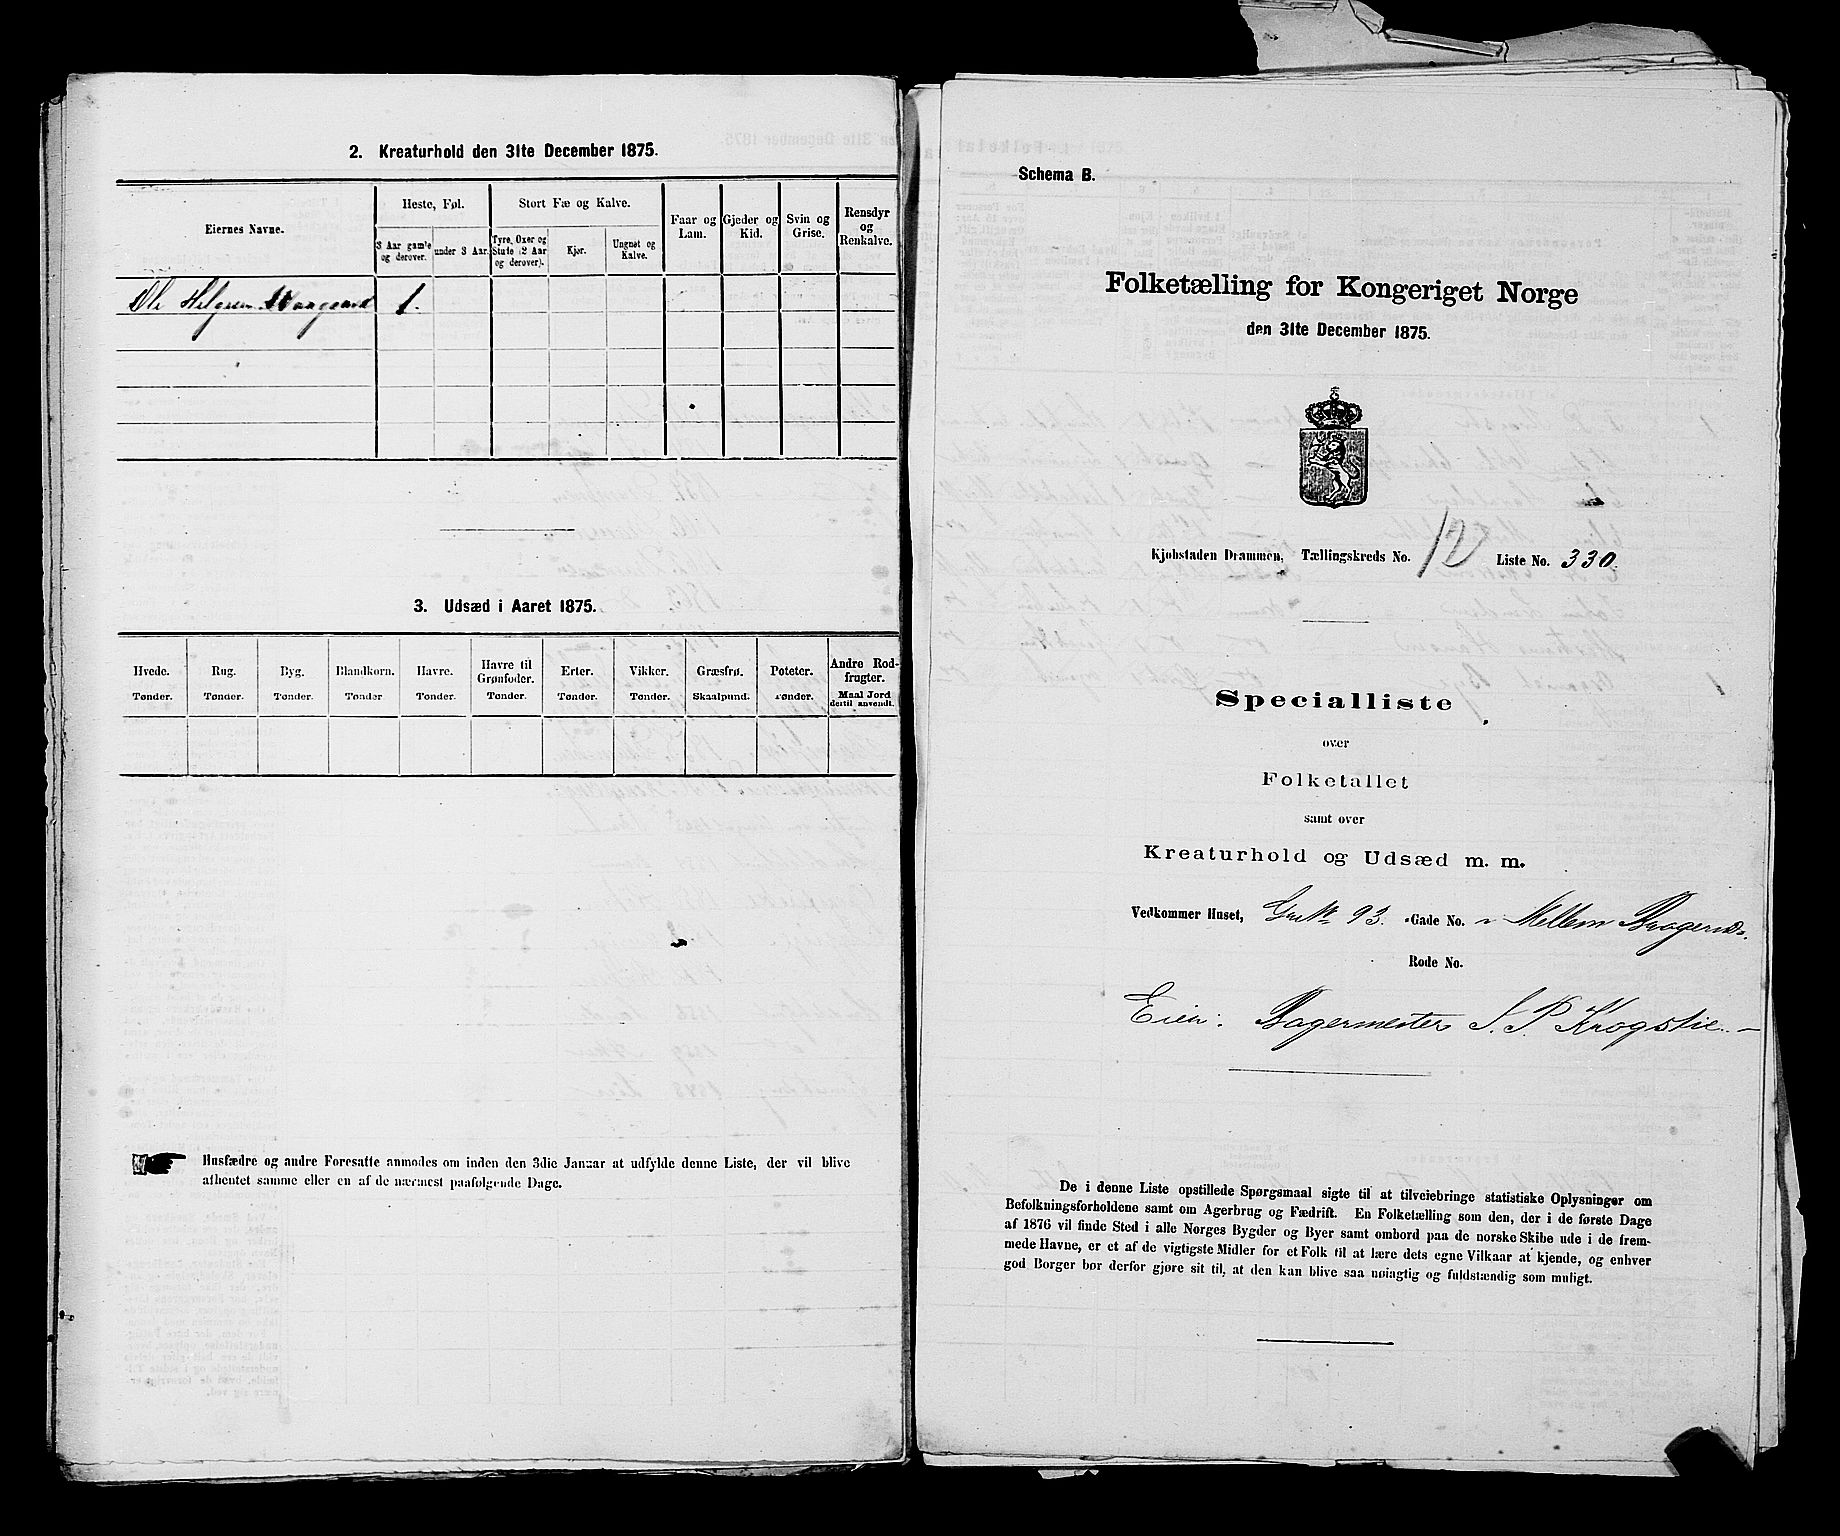 2. Kreaturhold den 31te December 1875.
Eiernes Navne.
Heste, Føl.
Stort Fæ og Kalve.
Faar og Lam.
Gjeder og Kid.
Svin og Grise.
Rensdyr og Renkalve.
3 Aar gamle og derover.
under 3 Aar.
Tyre, Oxer og Stude (2 Aar og derover).
Kjør.
Ungnøt og Kalve.
Ole Helgesen 1.
3. Udsæd i Aaret 1875.
Hvede. Rug. Byg. Blandkorn. Havre. Havre til Grønfoder. Erter. Vikker. Græsfrø. Poteter. Andre Rodfrugter.
Tønder. Tønder. Tønder. Tønder Tønder. Tønder. Tønder. Tønder. Skaalpund. Tønder. Maal Jord dertil anvendt.
Husfædre og andre Foresatte anmodes om inden den 3die Januar at udfylde denne Liste, der vil blive
afhentet samme eller en af de nærmest paafølgende Dage.
Schema B.
Folketælling for Kongeriget Norge
den 31te December 1875.
Kjøbstaden Drammen, Tællingskreds No. 12 Liste No. 330.
Specialliste
over
Folketallet
samt over
Kreaturhold og Udsæd m. m.
Vedkommer Huset, 93. Gade No. Mellem
Rode No.
Eier: Bagermester S. P. Krogstie
De i denne Liste opstillede Spørgsmaal sigte til at tilveiebringe statistiske Oplysninger om
Befolkningsforholdene samt om Agerbrug og Fædrift. En Folketælling som den, der i de første Dage
af 1876 vil finde Sted i alle Norges Bygder og Byer samt ombord paa de norske Skibe ude i de frem-
mede Havne, er et af de vigtigste Midler for et Folk til at lære dets egne Vilkaar at kjende, og enhver
god Borger bør derfor gjøre sit til, at den kan blive saa nøiagtig og fuldstændig som muligt.